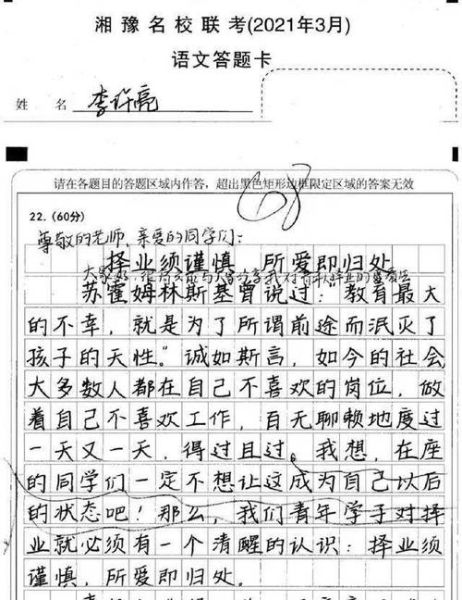 湘豫名校联考(2021年3月)
语文答题卡
姓 名 李许亮
请在各题目的答题区域内作答，超出黑色矩形边框限定区域的答案无效
22.(60分)
尊敬的老师、亲爱的同学们：
择业须谨慎 所爱即归处
大家好
苏霍姆林斯基曾说过：“教育最大
的不幸，就是为了所谓前途而泯灭了
孩子的天性。”诚如斯言，如今的社会
大多数人都在自己不喜欢的岗位，做
着自己不喜欢工作，百无聊赖地度过
一天又一天，得过且过。我想，在座
的同学们一定不想让这成为自己以后
的状态吧！那么，我们青年学子对择
业就必须有一个清醒的认识：择业须
谨慎，所爱即归处。